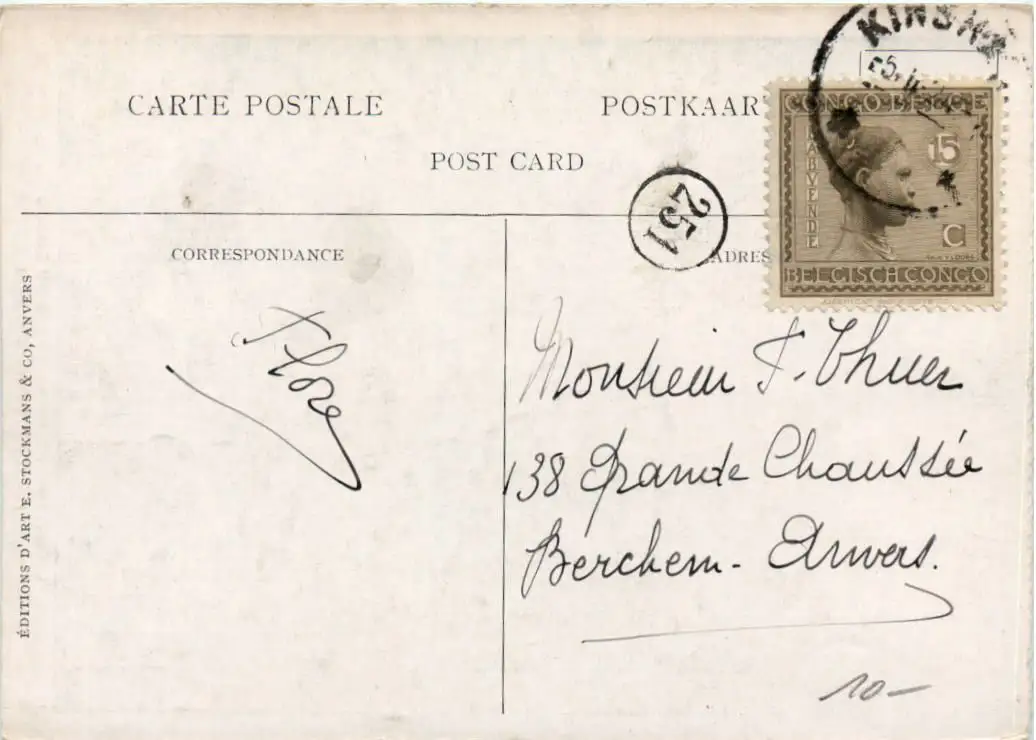 CARTE POSTALE
POSTKAAR
POST CARD
CONGO BELGE
15
C
BABVENDE
BELGISCH CONGO
251
CORRESPONDANCE
ADRES
ÉDITIONS D'ART E. STOCKMANS & CO, ANVERS
Monsieur F. Thuer
138 Grande Chaussée
Berchem - Anvers.
10-